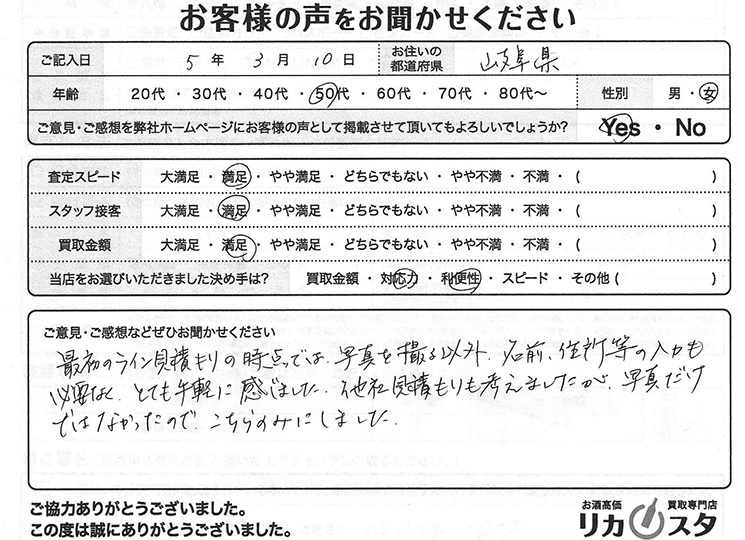 お客様の声をお聞かせください
ご記入日 5年 3月 10日 お住いの都道府県 岐阜県
年齢 20代・30代・40代・50代・60代・70代・80代〜 性別 男・女
ご意見・ご感想を弊社ホームページにお客様の声として掲載させて頂いてもよろしいでしょうか? Yes・No
査定スピード 大満足・満足・やや満足・どちらでもない・やや不満・不満・( )
スタッフ接客 大満足・満足・やや満足・どちらでもない・やや不満・不満・( )
買取金額 大満足・満足・やや満足・どちらでもない・やや不満・不満・( )
当店をお選びいただきました決め手は? 買取金額・対応力・利便性・スピード・その他( )
ご意見・ご感想などぜひお聞かせください
最初のライン見積もりの時点では、写真を撮る以外、名前、住所等の入力も
必要なく、とても手軽に感じました。他社見積もりも考えましたが、写真だけ
ではなかったので、こちらのみにしました。
ご協力ありがとうございました。
この度は誠にありがとうございました。
お酒高価 買取専門店
リカスタ